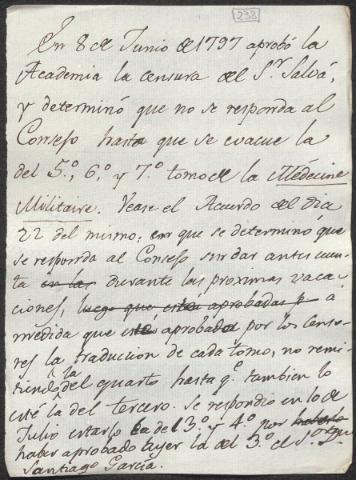 238
En 8 de Junio de 1797 aprobó la
Academia la censura del S.r Salvá,
y determinó que no se responda al
Consejo hasta que se evacue la
del 5.º, 6.º y 7.º tomo de la Médecine
Militaire. Vease el Acuerdo del dia
22 del mismo, en que se determinó que
se responda al Consejo sin dar antes cuen-
ta en las durante las proximas vaca-
ciones, luego que estè aprobadas p à
medida que esté aprobada por los censo-
res la traducion de cada tomo, no remi-
tiendo la del quarto hasta q.e tambien lo
esté la del tercero. Se respondió en 10 de
Julio estarlo la del 3.º y 4.º por haberlo
haber aprobado ayer la del 3.º el S.r
Santiago García.